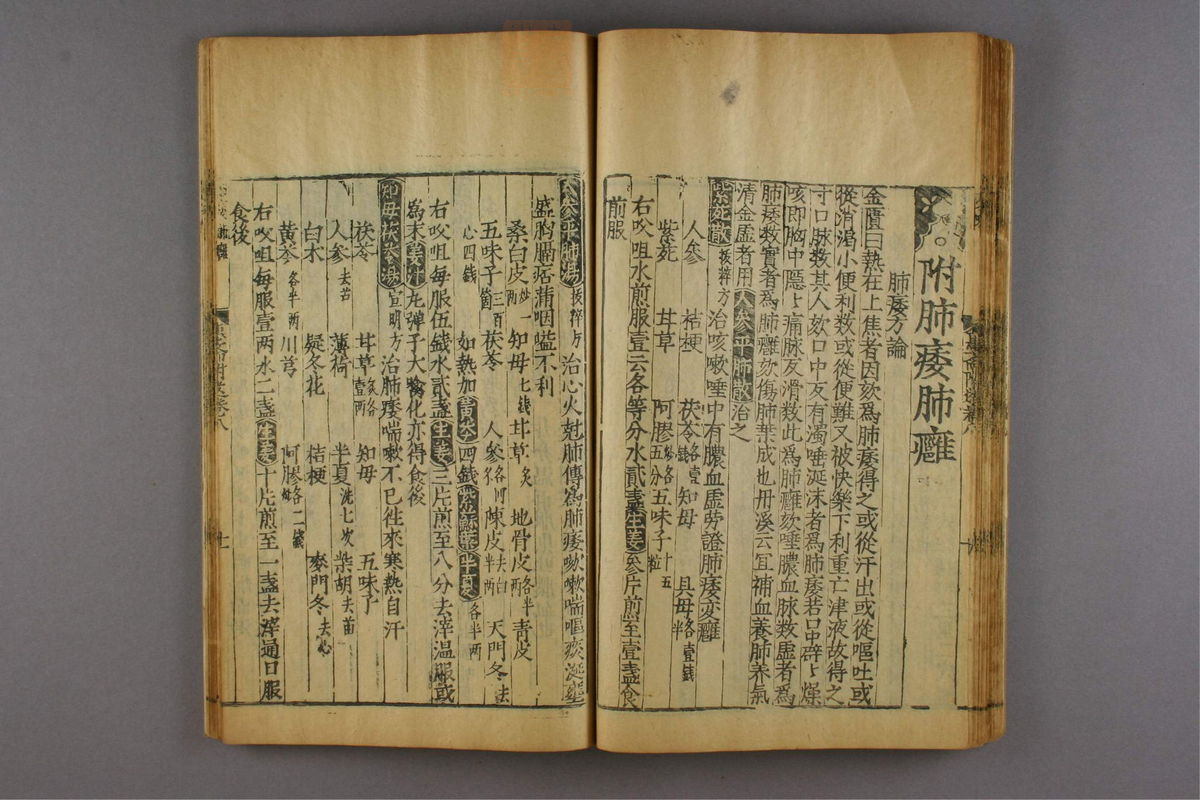 附肺痿肺癰
肺痿方論
金匱曰熱在上焦者因欬爲肺痿得之或從汗出或從嘔吐或
從消渴小便利数或從便難又被快樂下利重亡津液故得之
寸口脉数其人欬口中反有濁唾涎沫者爲肺痿若口中辟〻燥
咳即胸中隠〻痛脉反滑数此爲肺癰欬唾膿血脉数虚者爲
肺痿数實者爲肺癰欬傷肺葉成也丹溪云宜補血養肺养氣
清金虚者用人参平肺散治之
紫菀散 拔粹方 治咳嗽唾中有膿血虚劳證肺痿变癰
人參 桔梗 茯苓各壹錢 知母 貝母各壹錢半
紫菀 甘草 阿膠各五分 五味子十五粒
右㕮咀水煎服壹云各等分水貳盞生姜叅片煎至壹盞食
前服
人参平肺湯 拔粹方 治心火尅肺傳爲肺痿咳嗽喘嘔痰涎壅
盛胸膈痞满咽嗌不利
桑白皮炒一两 知母七錢 甘草炙 地骨皮各半两 青皮
五味子三百箇 茯苓 人参各 陳皮去白半两 天門冬去
心四錢 如熱加黄芩四錢紫蘇葉半夏各半两
右㕮咀每服伍錢水貳盞生姜三片煎至八分去滓温服或
爲末姜汁丸弹子大噙化亦得食後
知母茯苓湯 宣明方 治肺痿喘嗽不已徃來寒熱自汗
茯苓 甘草各壹两 知母 五味子
人参去芦 薄荷 半夏洗七次 柴胡去苗
白术 欵冬花 桔梗 麥門冬去心
黄芩各半两 川芎 阿膠各二錢
右㕮咀每服壹两水二盞生姜十片煎至一盞去滓通口服
食後